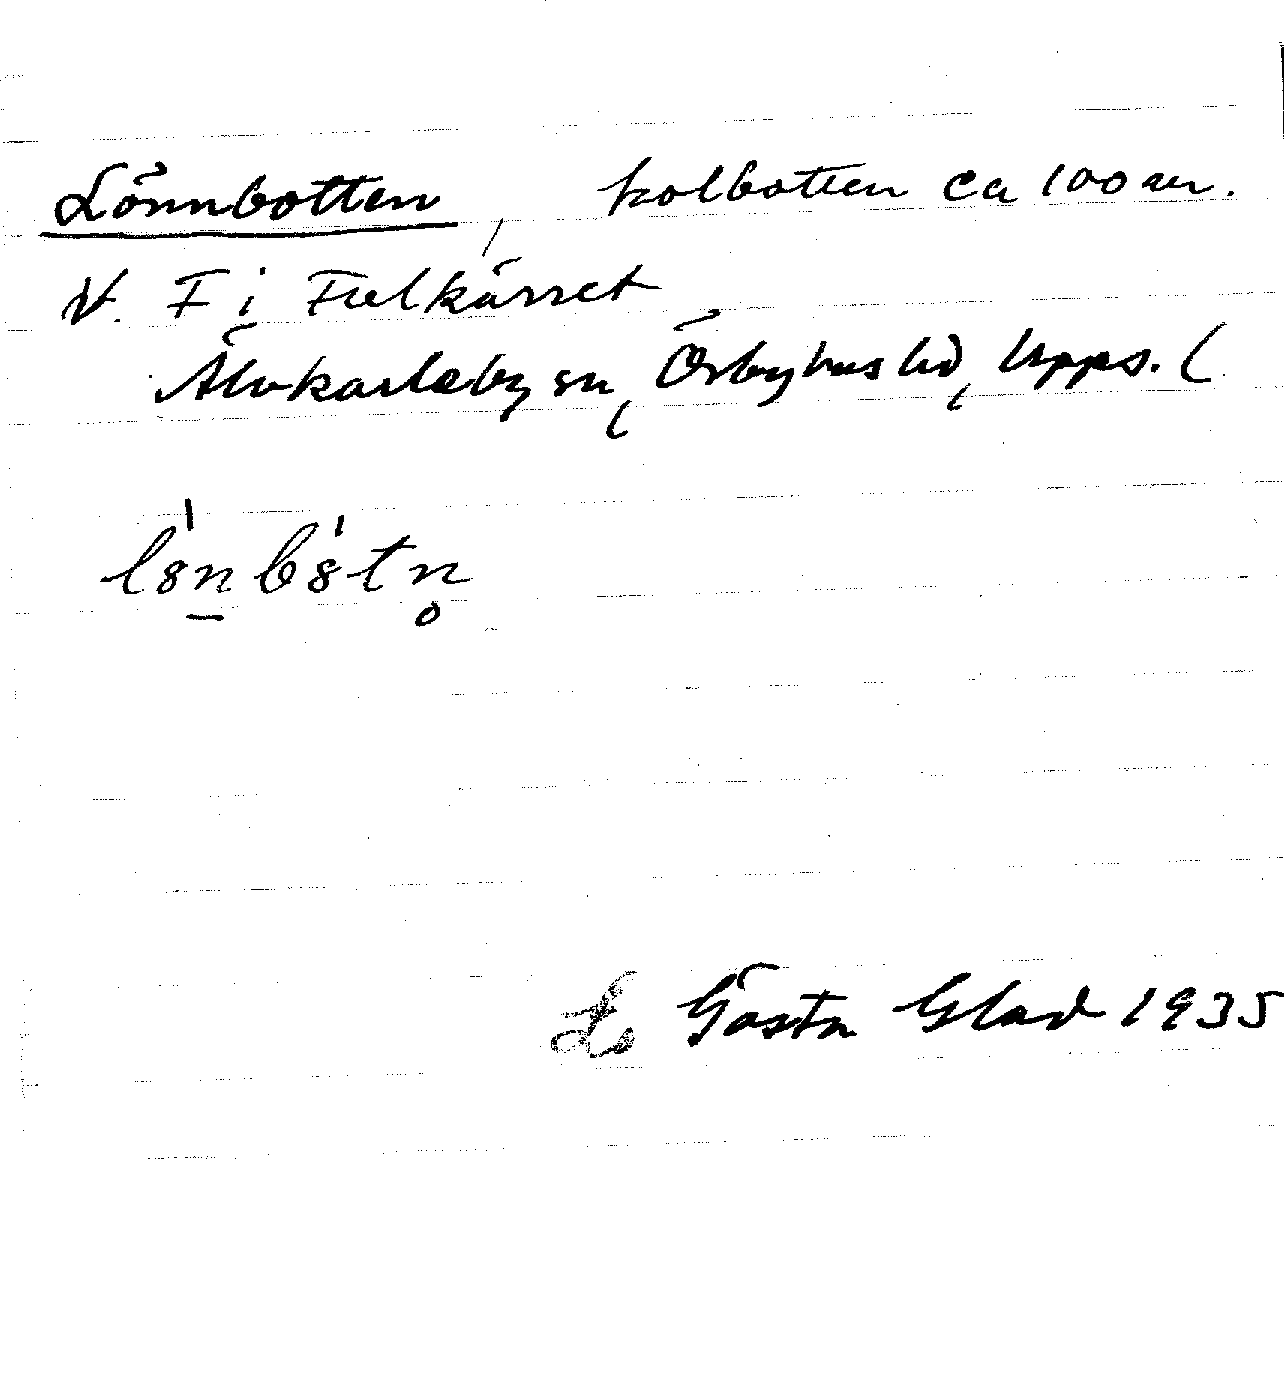 Lönnbotten, kolbotten ca 100 m.
V. F i Fulkärret
Älvkarleby sn, Örbyhus hd, Upps. l
l8nb8tn
Gösta Glad 1935